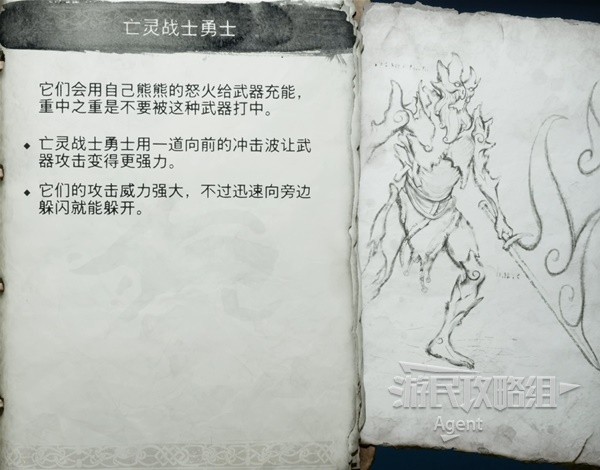 亡灵战士勇士
它们会用自己熊熊的怒火给武器充能，
重中之重是不要被这种武器打中。
亡灵战士勇士用一道向前的冲击波让武
器攻击变得更强力。
它们的攻击威力强大，不过迅速向旁边
躲闪就能躲开。
游民攻略组
Agent